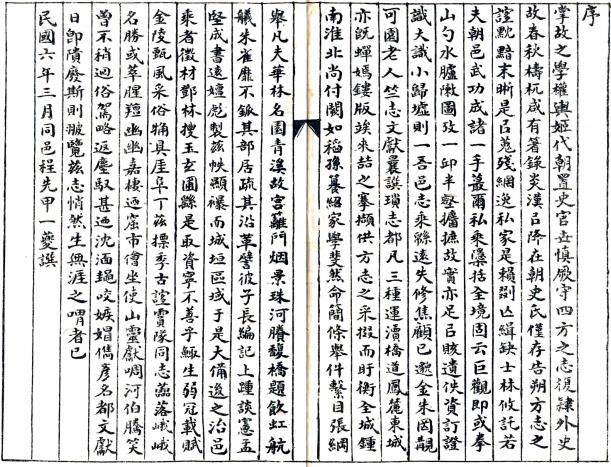 序
掌故之學權輿姬代朝置史官世慎厥守四方之志復隸外史
故春秋檮杌咸有著錄炎漢㠯降在朝史氏僅存告朔方志之
誼黮黯末晰是㠯蒐殘網逸私家是賴劄㠯緝缺士林攸託若
夫朝邑武功成諸一手蕞爾私乘藻括全境固云巨觀即或拳
山勺水臚幖圖攷一邱半壑攟摭故實亦足㠯賅遺佚資訂證
識大識小歸墟則一吾邑志乘緜遠失修焦顧已邈金朱罔覯
可園老人竺志文獻曩譔瑣志都凡三種運瀆橋道鳳麓東城
亦既蟬嫣鏤版竢來喆之搴擷供方志之采掇而盱衡全城鍾
南淮北尚付闕如稻孫纂紹家學斐然命簡條舉件繫目張綱
舉凡夫華林名園青溪故宮籬門烟景珠河賸馥橋題飲虹航
艤朱雀靡不鈲其部居疏其沿革譬彼子長編記上踵談憲孟
堅成書遠嬗彪製茲帙顯襮而城垣區域于是大備逡之治邑
乘者徵材鄧林搜玉玄圃繇是取資寧不善乎鯫生弱冠載賦
金陵甄風采俗犕具厓阜丁茲摽季古誼霣隊同志蘦落峨峨
名勝或萃腥羶幽幽嘉棲迺窟市儈坐使山靈獻啁河伯騰笑
曾不稍迴俗駕略返塵馭甚迺沈湎䵷咬嫉媢儁彥名都文獻
日卽隤廢斯則披覽茲志悄然生無涯之喟者已
民國六年三月同邑程先甲一夔譔